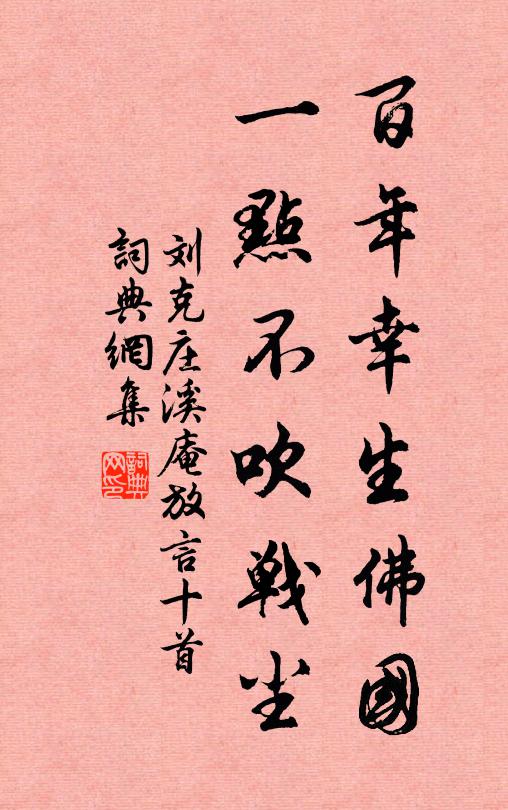 百年幸生佛國
一點不吹戰尘
刘克庄溪庵放言十首
詞典網集
詞典網印